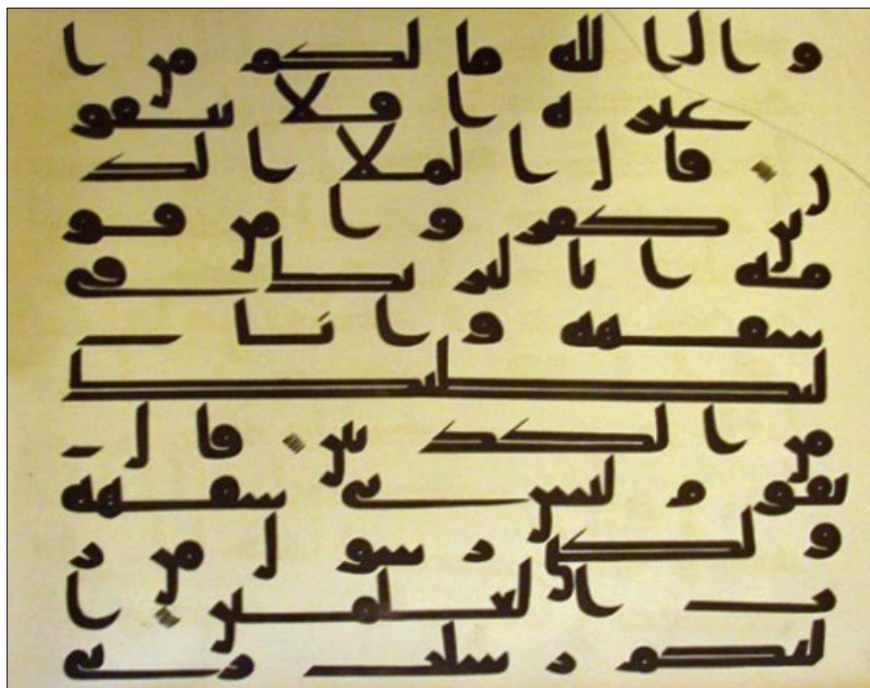 وا الله ما لكم من ا
غيره افلا تتقو
ن قال الملا الذ
ين كفروا من قو
مه انا لنريك في
سفهه وانا
لنظنك
من الكذبين قال
يقوم ليس بي سفهه
ولكني رسول من ر
ب العلمين ا
بلغكم رسلت ربي